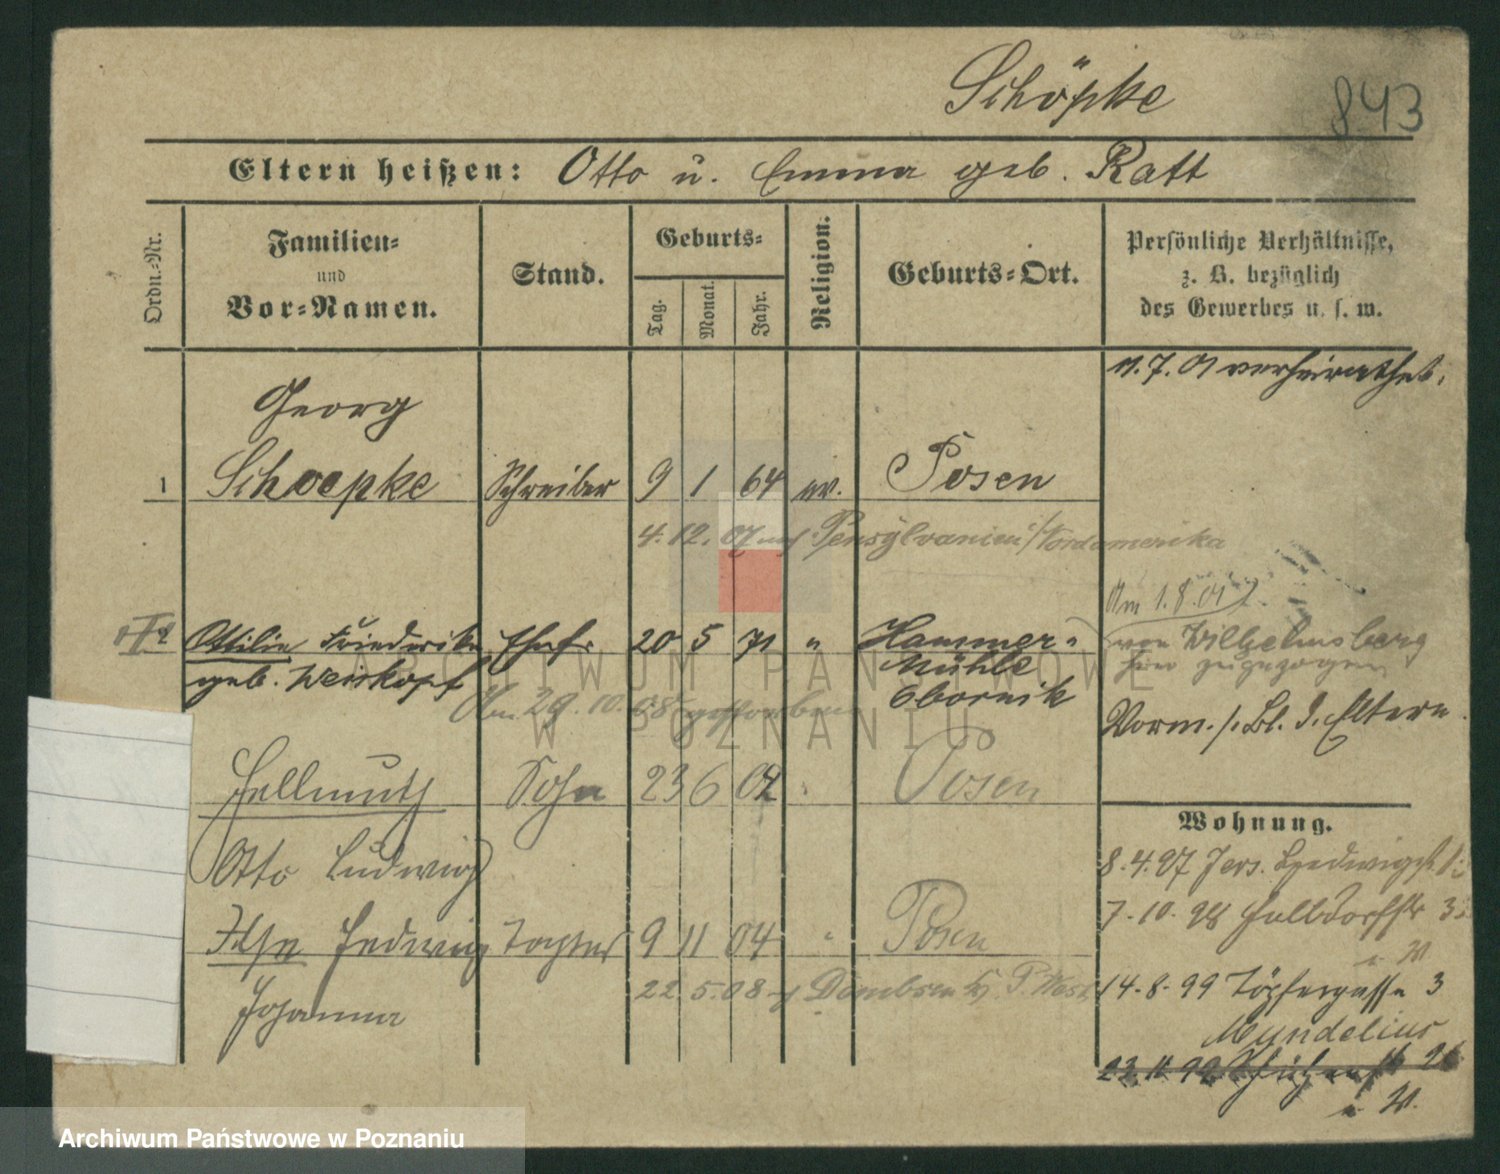 Schöpke 843
Eltern heißen: Otto u. Emma geb. Ratt
Ordn.-Nr.
Familien-
und
Vor-Namen.
Stand.
Geburts-
Tag.
Monat.
Jahr.
Religion.
Geburts-Ort.
Persönliche Verhältnisse,
z. B. bezüglich
des Gewerbes u. s. w.
11.7.01 verheirathet.
Georg
1 Schoepke Schreiber 9 1 64 ev. Posen
4.12.07 nach Pensylvanien/Nordamerika
Am 1.8.01
2 Ottilie Friederike Ehefr 20 5 71 " Hammer-
geb. Weiskopf
Mühle
Obornik
von Wilhelmsberg
hier zugezogen
Am 29.10.08 gestorben
Vorm. s. Bl. d. Eltern.
Hellmuth Sohn 23 6 02 " Posen
Otto Ludwig
Ilse Hedwig Tochter 9 11 04 " Posen
Johanna
22.5.08 n Dembsen Kr. P. West
Wohnung.
8.4.97 Jers. Hedwigstr.
7.10.98 Halbdorfstr 3
b. W.
14.8.99 Töpfergasse 3
Mundelius
22.11.99 Schützenstr 26
b. W.
ARCHIWUM PAŃSTWOWE
W POZNANIU
Archiwum Państwowe w Poznaniu